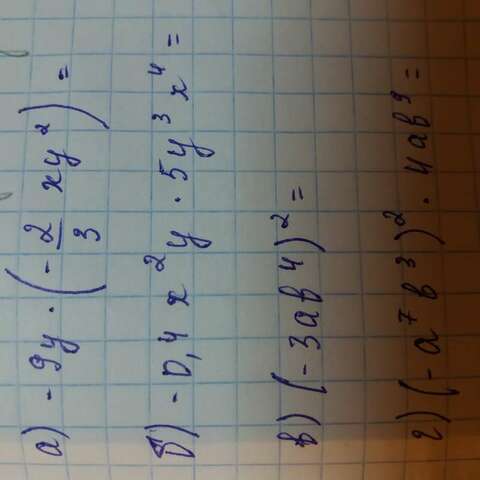 а) - 9y · (- 2/3 xy²) =
б) - 0,4 x²y · 5y³x⁴ =
в) (- 3ab⁴)² =
г) (- a⁷b³)² · 4ab⁹ =